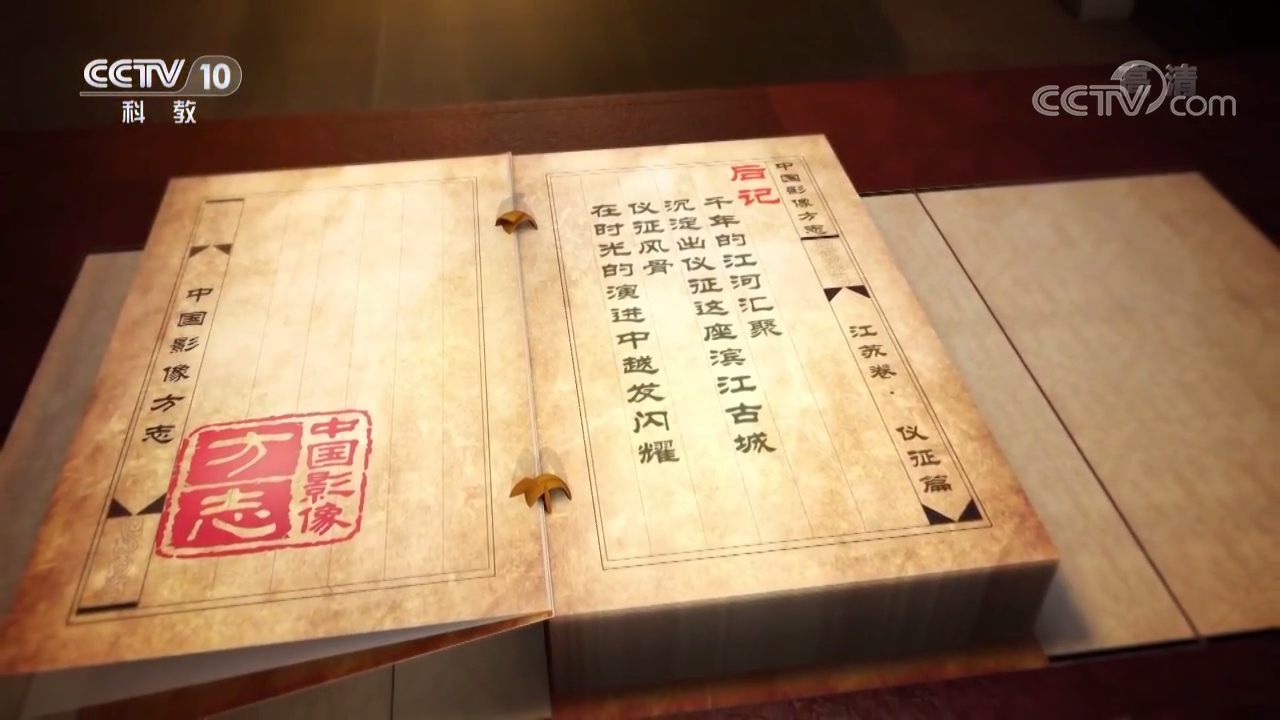 CCTV 10
科教
高清
CCTV.com
中国影像方志
江苏卷·仪征篇
后记
千年的江河汇聚
沉淀出仪征这座滨江古城
仪征风骨
在时光的演进中越发闪耀
中国影像方志
中国影像
方志